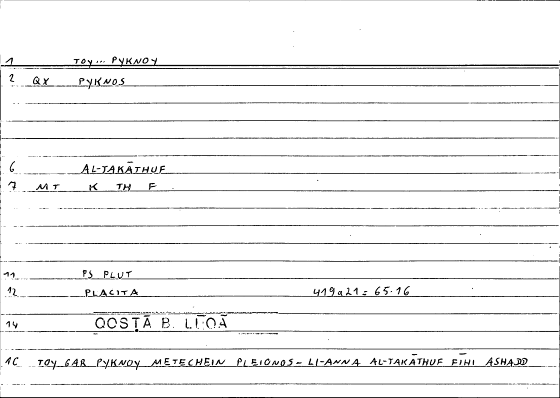 1 TOY... PYKNOY
2 QX PYKNOS
6 AL-TAKĀTHUF
7 MT K TH F
11 PS PLUT
12 PLACITA 419a21 = 65.16
14 QOSṬĀ B. LŪQĀ
16 TOY GAR PYKNOY METECHEIN PLEIONOS - LI-ANNA AL-TAKĀTHUF FĪHI ASHADD